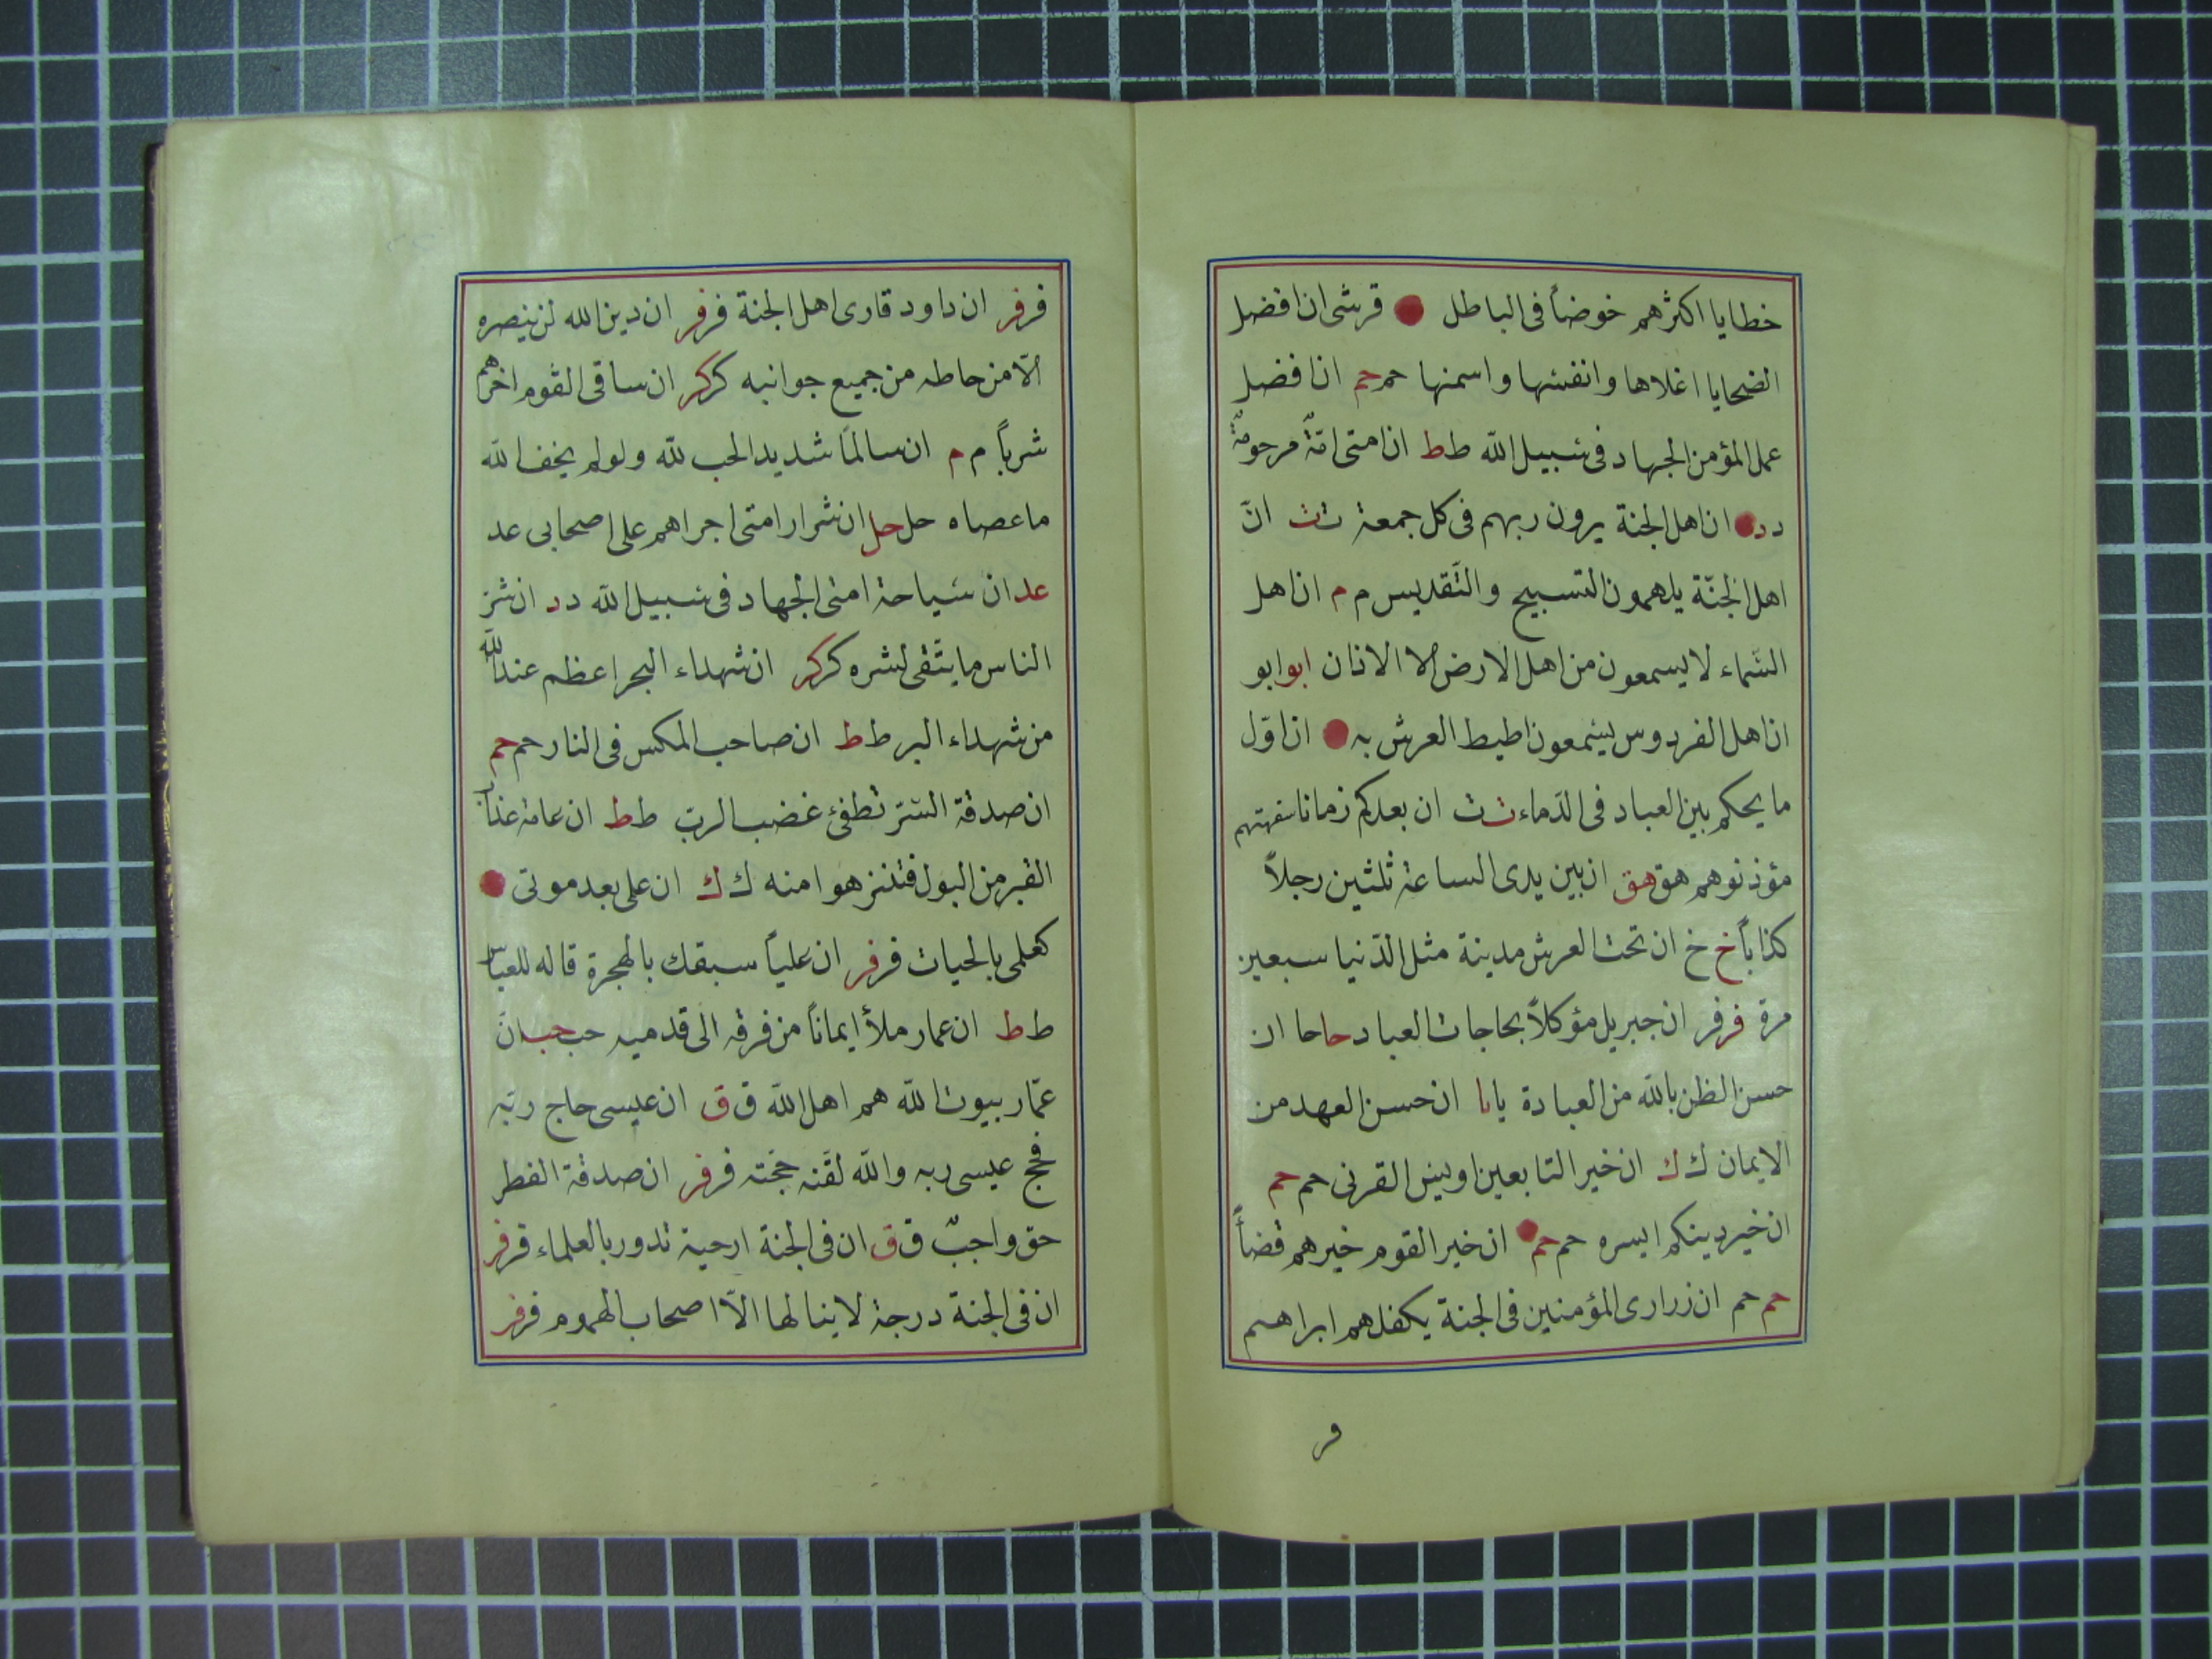 خطايا اكثرهم خوضاً فى الباطل قرشى ان افضل
الضحايا اغلاها وانفسها واسمنها حم حم ان افضل
عمل المؤمن الجهاد فى سبيل الله ط ط ان امتى امّةٌ مرحومةٌ
د د ان اهل الجنة يرون ربهم فى كل جمعة ث ث انّ
اهل الجنّة يلهمون التسبيح والتّقديس م م ان اهل
السّماء لا يسمعون من اهل الارض الا الاذان ابو ابو
ان اهل الفردوس يسمعون اطيط العرش به ان اوّل
ما يحكم بين العباد فى الدّماء ث ث ان بعدكم زمانا سفهتهم
مؤذنوهم هق هق ان بين يدى الساعة ثلثين رجلاً
كذاباً خ خ ان تحت العرش مدينة مثل الدّنيا سبعين
مرة فر فر ان جبريل مؤكلاً بحاجات العباد حا حا ان
حسن الظن بالله من العبادة يا يا ان حسن العهد من
الايمان ك ك ان خير التابعين اويس القرنى حم حم
ان خير دينكم ايسره حم حم ان خير القوم خيرهم قضاً
حم حم ان زرارى المؤمنين فى الجنة يكفلهم ابراهيم
فر
فر فر ان داود قارى اهل الجنة فر فر ان دين الله لن ينصره
الّا من حاطه من جميع جوانبه كر كر ان ساقى القوم اخرهم
شرباً م م ان سالماً شديد الحب لله ولو لم يخف الله
ما عصاه حل حل ان شرار امتى اجراهم على اصحابى عد
عد ان سياحة امتى الجهاد فى سبيل الله د د ان شرّ
الناس ما يتّقى لشره كر كر ان شهداء البحر اعظم عند الله
من شهداء البر ط ط ان صاحب المكس فى النار حم حم
ان صدقة السّتر تطفئ غضب الربّ ط ط ان عامة عذاب
القبر من البول فتنزهوا منه ك ك ان على بعد موتى
كعلمى بالحيات فر فر ان علياً سبقك بالهجرة قاله للعبّاس
ط ط ان عمار ملأ ايماناً من فرقه الى قدميه حب حب انّ
عمّار بيوت الله هم اهل الله ق ق ان عيسى حاج ربّه
فحج عيسى ربه والله لقّنه حجّته فر فر ان صدقة الفطر
حق واجبٌ ق ق ان فى الجنة ارحية تدور بالعلماء فر فر
ان فى الجنة درجة لا ينالها الّا اصحاب الهموم فر فر